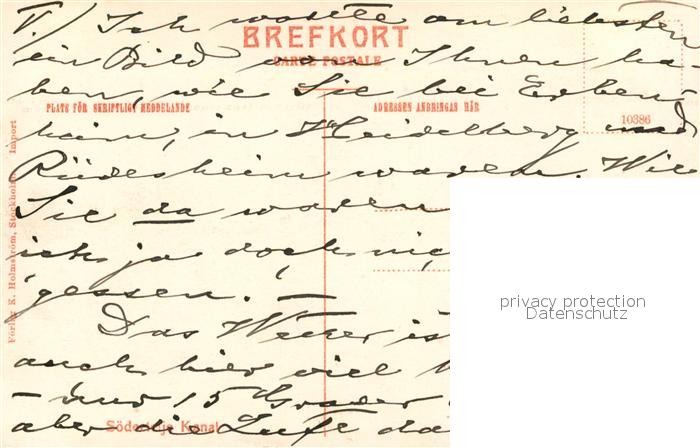 V./ Ich wollte am liebsten
BREFKORT
ein Bild von Ihnen ha-
CARTE POSTALE
ben, wie Sie bei Erben-
PLATS FÖR SKRIFTLIGT MEDDELANDE
ADRESSEN ANBRINGAS HÄR
10386
heim, in Heidelberg und
Rüdesheim waren. Wie
Sie da waren
ich ja doch nic
gessen. —
Das Wetter is
auch hier viel
– nur 15 Grader
aber die Luft da
Södertelje Kanal
Förlag K. Holmström, Stockholm. Import
privacy protection
Datenschutz